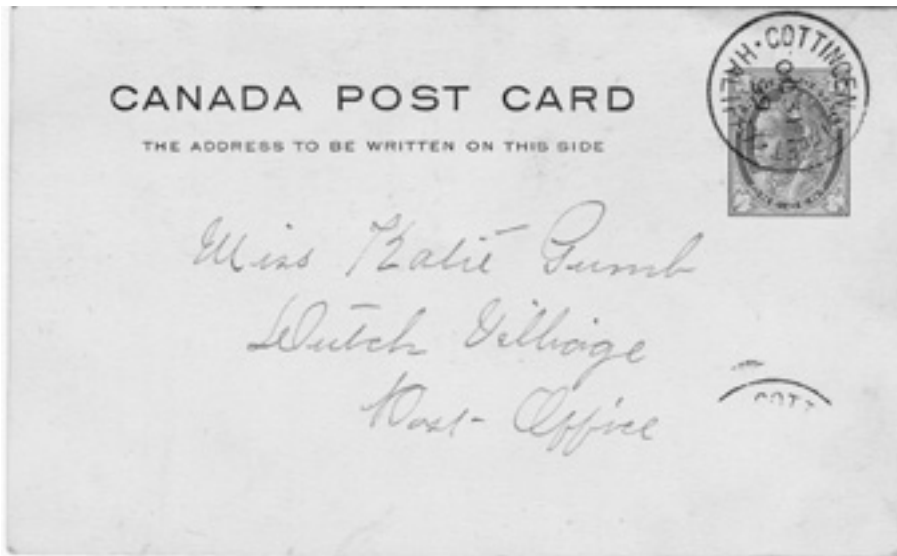 CANADA POST CARD
THE ADDRESS TO BE WRITTEN ON THIS SIDE
COTTINGEN
Miss Katie Gumb
Dutch Village
Post-Office
COTT